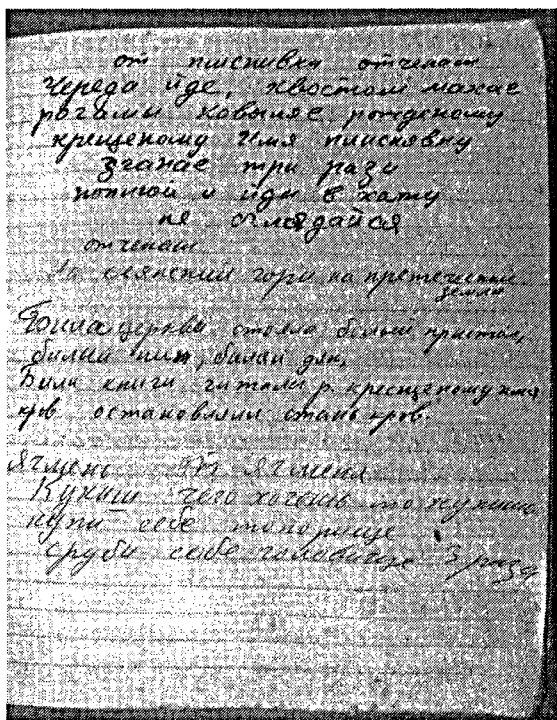 от писнивки отченаш
Череда йде, хвостом махае
рогами ковыляе рожденому
крещеному Имя пиисливку
зганае три рази
поплюй и иди в хату
не оглядайся
отченаш
На сиянский гори на
земли
Била церквы стояла белый пристол,
билый пип, билай дяк,
Били книги читали р. крещеному имя
кров остановляли стань кров.
Ячмень от ячменя
Кукиш чего хочешь то купишь
купи себе топорище
сруби себе головище 3 раза